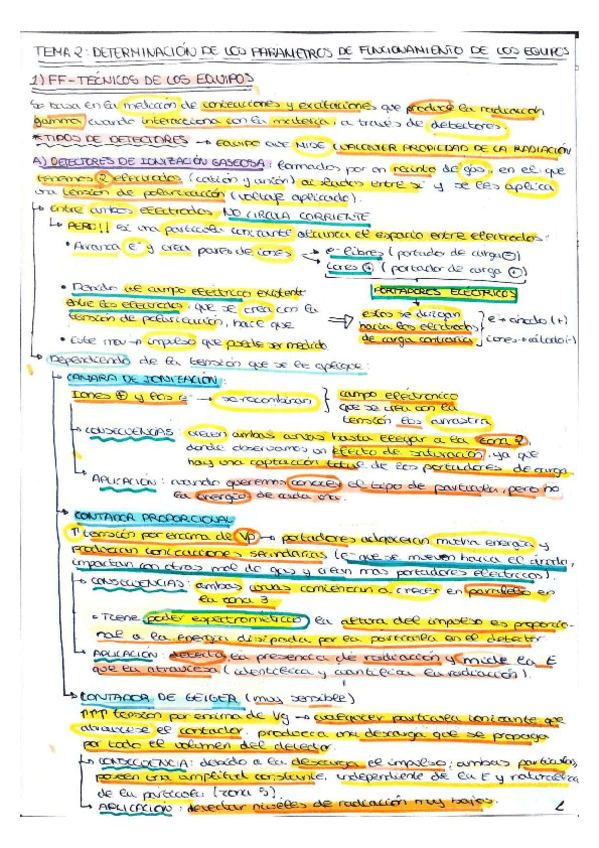 TEMA 2: DETERMINACIÓN DE LOS PARAMETROS DE FUNCIONAMIENTO DE LOS EQUIPOS
1) FF-TÉCNICOS DE LOS EQUIPOS
Se basa en la medición de ionizaciones y excitaciones que produce la radiación
gamma cuando interacciona con la materia, a través de detectores.
*TIPOS DE DETECTORES → EQUIPO QUE MIDE CUALQUIER PROPIEDAD DE LA RADIACIÓN
A) DETECTORES DE IONIZACIÓN GASEOSA: formados por un recinto de gas, en el que
tenemos 2 electrodos (catión y anión) aislados entre sí y se les aplica
una tensión de polarización (voltaje aplicado).
↳ Entre ambos electrodos NO CIRCULA CORRIENTE
↳ PERO!! si una partícula ionizante alcanza el espacio entre electrodos:
• Arranca e⁻ y crea pares de iones
e⁻ libres (portador de carga ⊖)
iones ⊕ (portador de carga ⊕)
PORTADORES ELÉCTRICOS
• Debido al campo eléctrico existente
entre los electrodos, que se crea con la
tensión de polarización, hace que
⇒ estos se dirijan
hacia los electrodos
de carga contraria
e⁻→ ánodo (+)
iones → cátodo (-)
• Este mov → impulso que puede ser medido.
↳ Dependiendo de la tensión que se le aplique:
→ CÁMARA DE IONIZACIÓN:
Iones ⊕ y los e⁻ → se recombinan
campo eléctronico
que se crea con la
tensión los arrastra
↳ CONSECUENCIAS: crecen ambas curvas hasta llegar a la zona 2,
donde observamos un efecto de saturación, ya que
hay una captación total de los portadores de carga.
↳ APLICACIÓN: cuando queremos conocer el tipo de partícula, pero no
la energía de cada una.
→ CONTADOR PROPORCIONAL
↑ tensión por encima de Vp → portadores adquieran mucha energía y
produzcan ionizaciones secundarias (e⁻ que se mueven hacia el ánodo,
impactan con otros mol de gas y crean más portadores eléctricos).
↳ CONSECUENCIAS: ambas curvas comienzan a crecer en paralelo en
la zona 3
• Tiene poder espectrométrico la altura del impulso es proporcio-
nal a la energía disipada por la partícula en el detector
↳ APLICACIÓN: detecta la presencia de radiación y mide la E
que la atraviesa (identifica y cuantifica la radiación).
→ CONTADOR DE GEIGER (muy sensible)
↑↑↑ tensión por encima de Vg → cualquier partícula ionizante que
atraviese el contador, produzca una descarga que se propaga
por todo el volumen del detector.
↳ CONSECUENCIA: debido a la descarga el impulso; ambas partículas,
poseen una amplitud constante, independiente de la E y naturaleza
de la partícula (zona 5).
↳ APLICACIÓN: detectar niveles de radiación muy bajos.